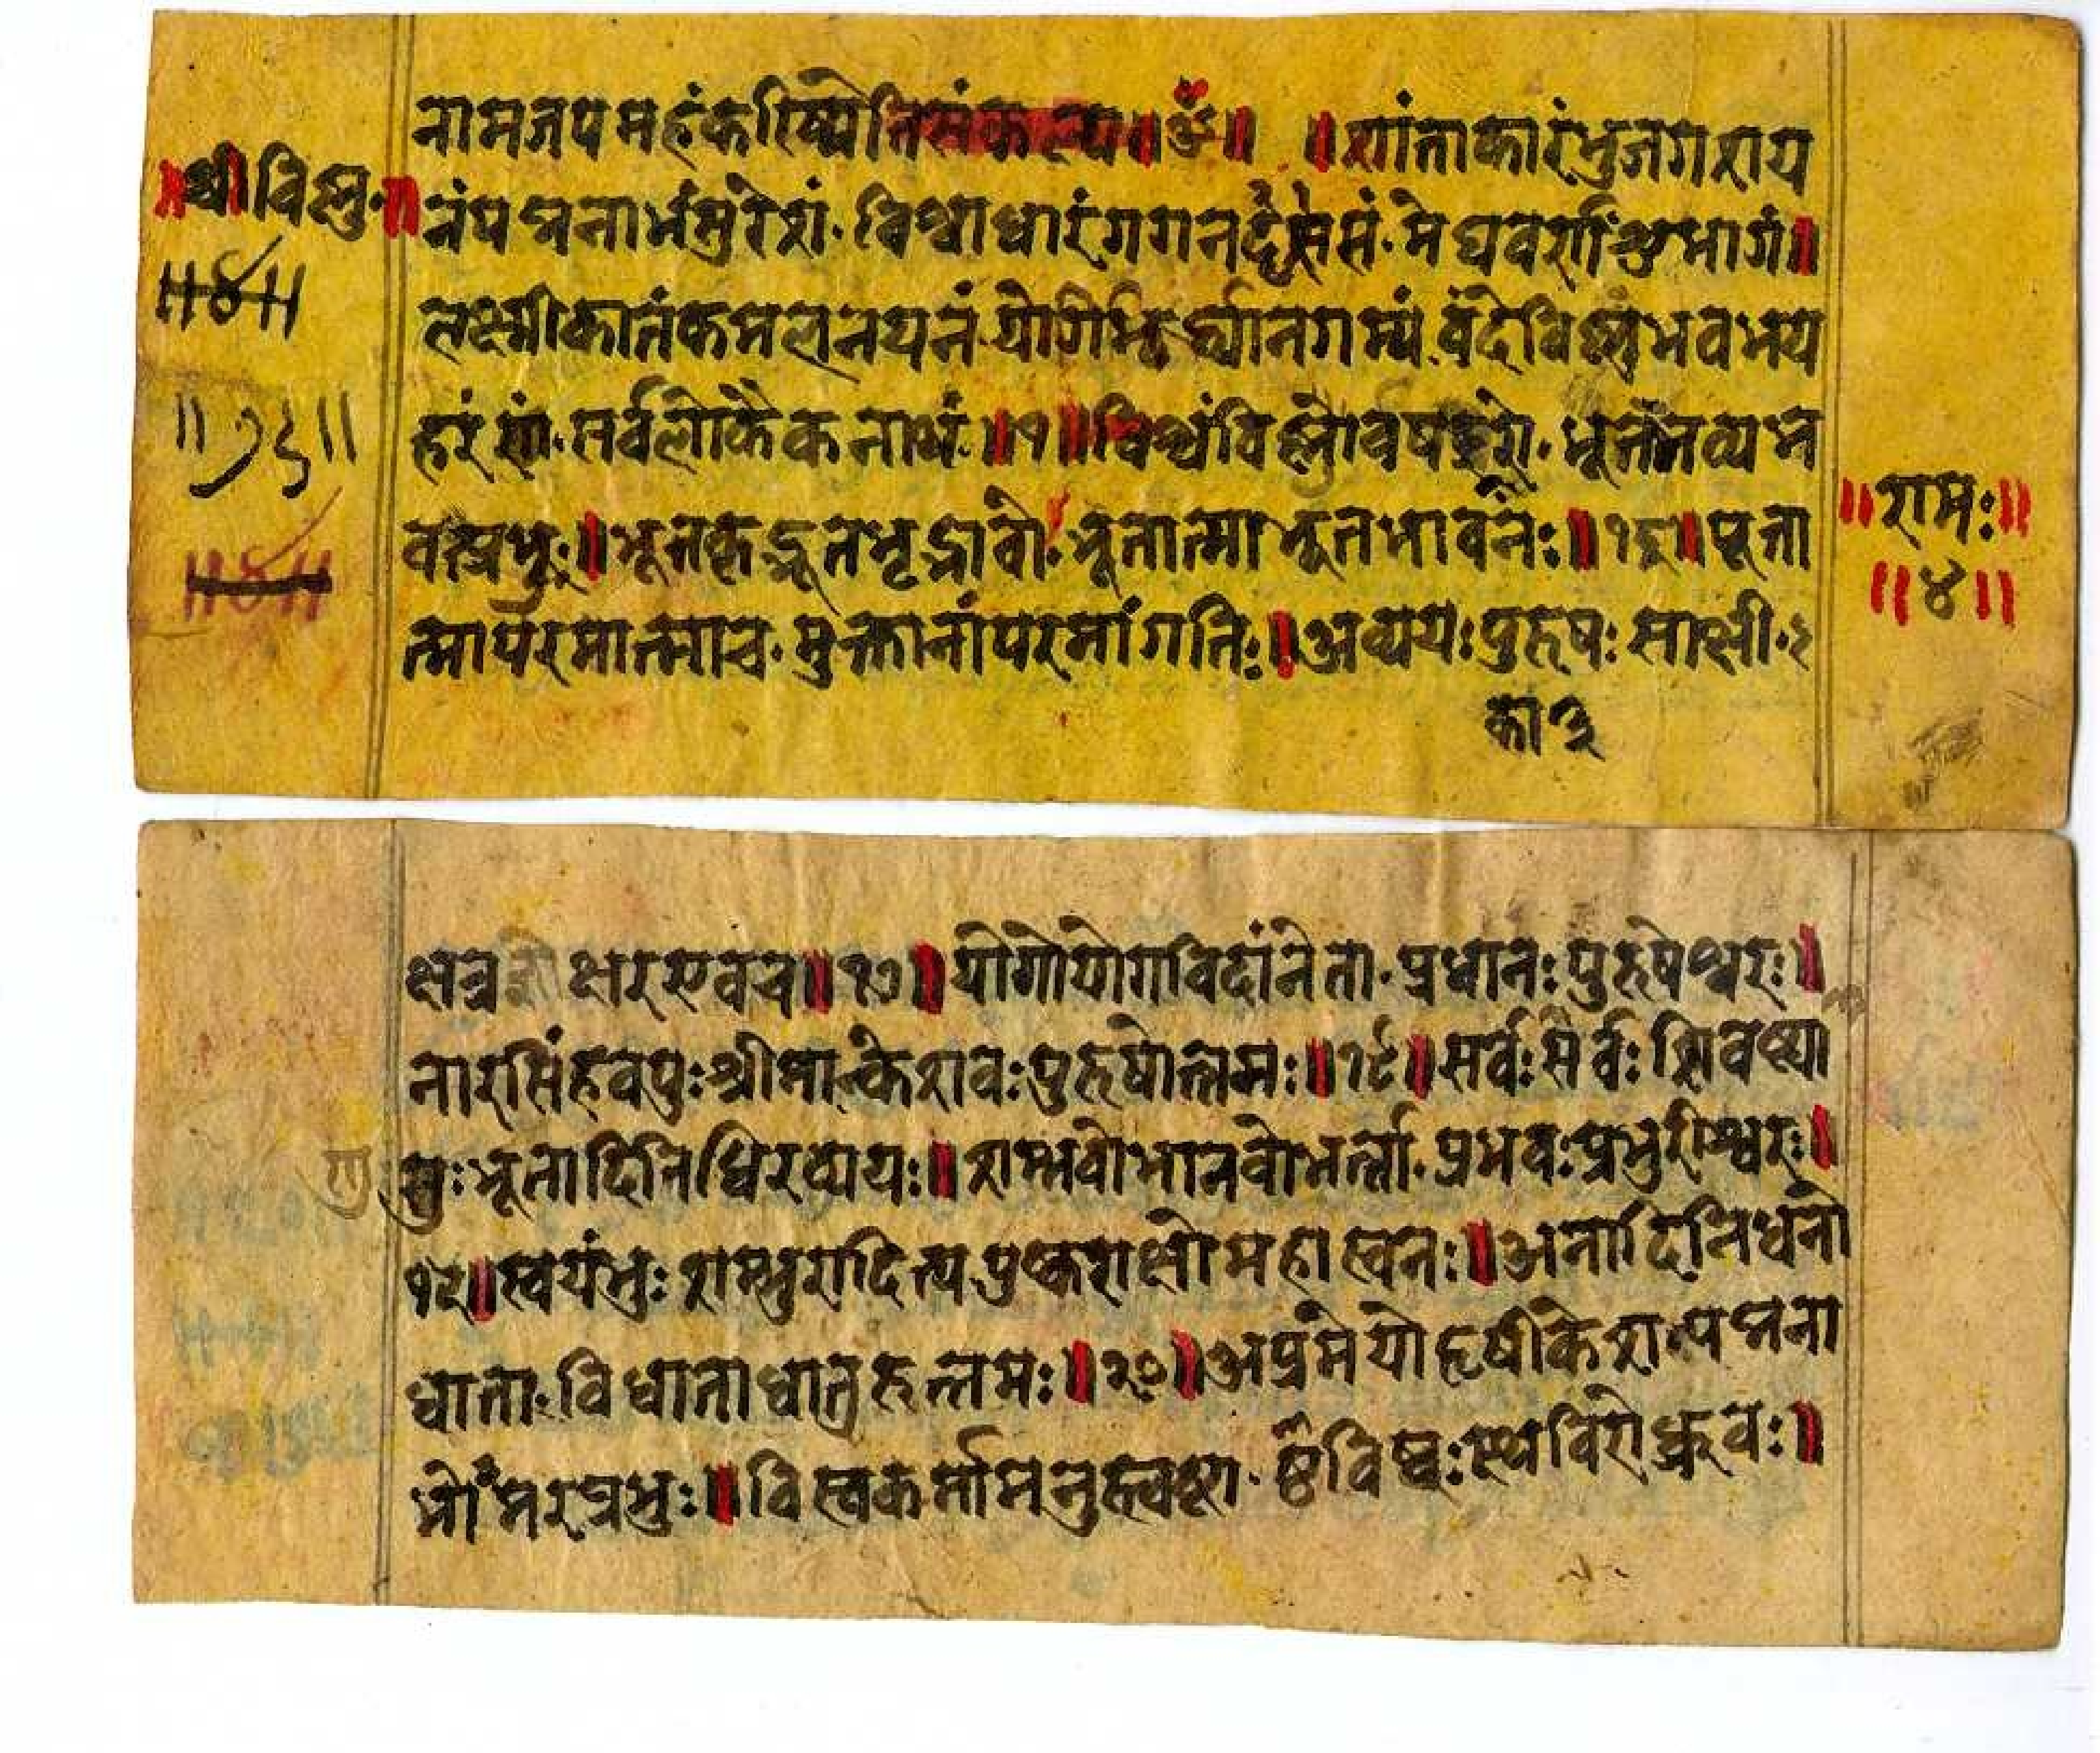 नामजपमहंकरिष्येतिसंकल्प्य॥ॐ॥ ॥शांताकारंभुजगशय
॥श्रीविष्णु॰॥
नंपद्मनाभंसुरेशं॰विश्वाधारंगगनसदृसं॰मेघवर्णंशुभागं॥
॥४॥
लक्ष्मीकातंकमलनयनंयोगिभिर्ध्यानगम्यं॰वंदेविष्णुंभवभय
हरं॰सर्वलोकैकनाथं॥१॥विश्वंविष्णुर्वषट्कारो॰भूतभव्यभ
॥१६॥
वत्प्रभुः॥भूतकृद्भूतभृद्भावो॰भूतात्माभूतभावनः॥१६॥पूता
॥रामः॥
॥४॥
॥४॥
त्मापरमात्माच॰मुक्तानांपरमांगतिः॥अव्ययःपुरुषःसाक्षी॰
का ३
क्षत्र क्षरएवच॥१७॥योगोयोगविदांनेता॰प्रधानःपुरुषेश्वरः॥
नारसिंहवपुःश्रीमान्केशवःपुरुषोत्तमः॥१८॥सर्वःसर्वःशिवस्था
णु
णुःभूतादिनिधिरव्ययः॥शम्भवोभानवोभर्त्ता॰प्रभवःप्रभुरीश्वरः॥
१९॥स्वयंभुःशम्भुरादित्य॰पुष्कराक्षोमहास्वनः॥अनादिनिधनो
धाता॰विधाताधातुरुत्तमः॥२०॥अप्रमेयोहृषीकेशत्पद्मना
भोमरप्रभुः॥विस्वकर्मामनुस्त्वष्टा॰ष्ठविष्ठःस्थविरोध्रुवः॥